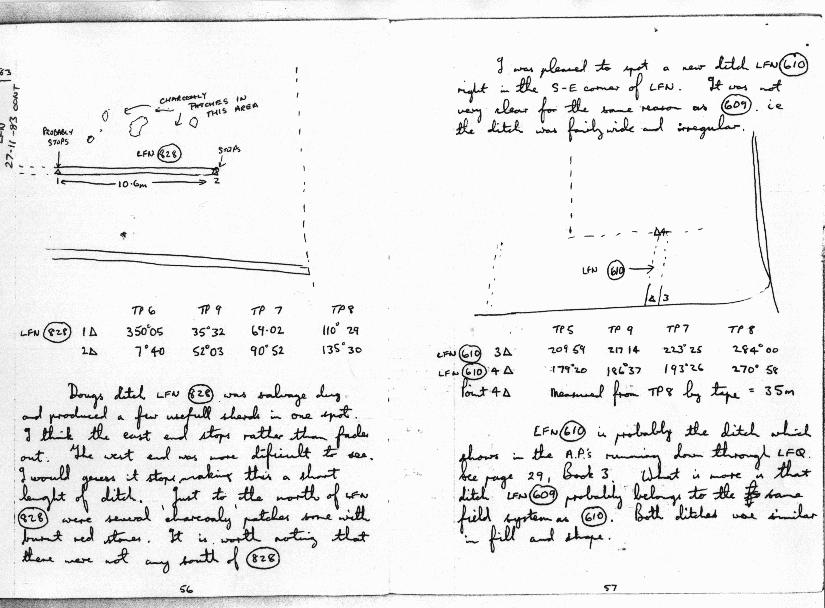 83
LFN
27-11-83 CONT
CHARCOALY
PATCHES IN
THIS AREA
PROBABLY
STOPS
LFN 828
STOPS
1 10.6m 2
TP 6 TP 9 TP 7 TP 8
LFN 828 1Δ 350°05 35°32 69·02 110° 29
2Δ 7°40 52°03 90°52 135°30
Dougs ditch LFN 828 was salvage dug
and produced a few usefull sherds in one spot.
I think the east end stops rather than fades
out. The west end was more dificult to see.
I would guess it stops making this a short
lenght of ditch. Just to the north of LFN
828 were several 'charcoaly' patches some with
burnt red stones. It is worth noting that
there were not any south of 828
56
I was pleased to spot a new ditch LFN 610
right in the S-E corner of LFN. It was not
very clear for the same reason as 609. ie
the ditch was fairly wide and irregular.
Δ4
LFN 610
Δ 3
TP5 TP 9 TP7 TP 8
LFN 610 3Δ 209 59 217 14 223°25 284°00
LFN 610 4Δ 179°20 186°37 193°26 270° 58
Point 4Δ Measured from TP8 by tape = 35m
LFN 610 is probably the ditch which
shows in the A.P.s running down through LFQ.
See page 29, Book 3. What is more is that
ditch LFN 609 probably belongs to the same
field system as 610. Both ditches were similar
in fill and shape.
57